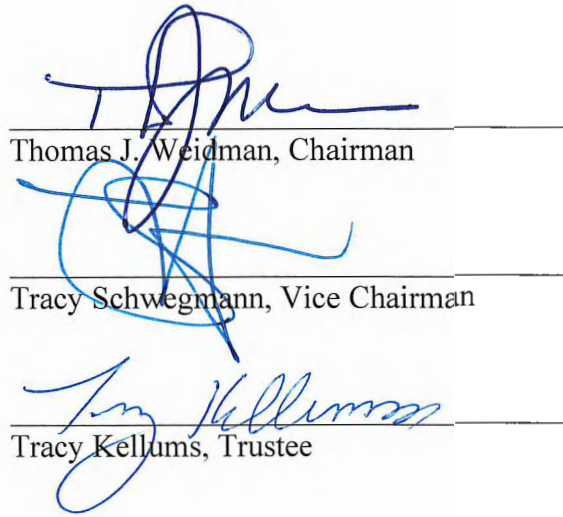 Thomas J. Weidman, Chairman
Tracy Schwegmann, Vice Chairman
Tracy Kellums
Tracy Kellums, Trustee